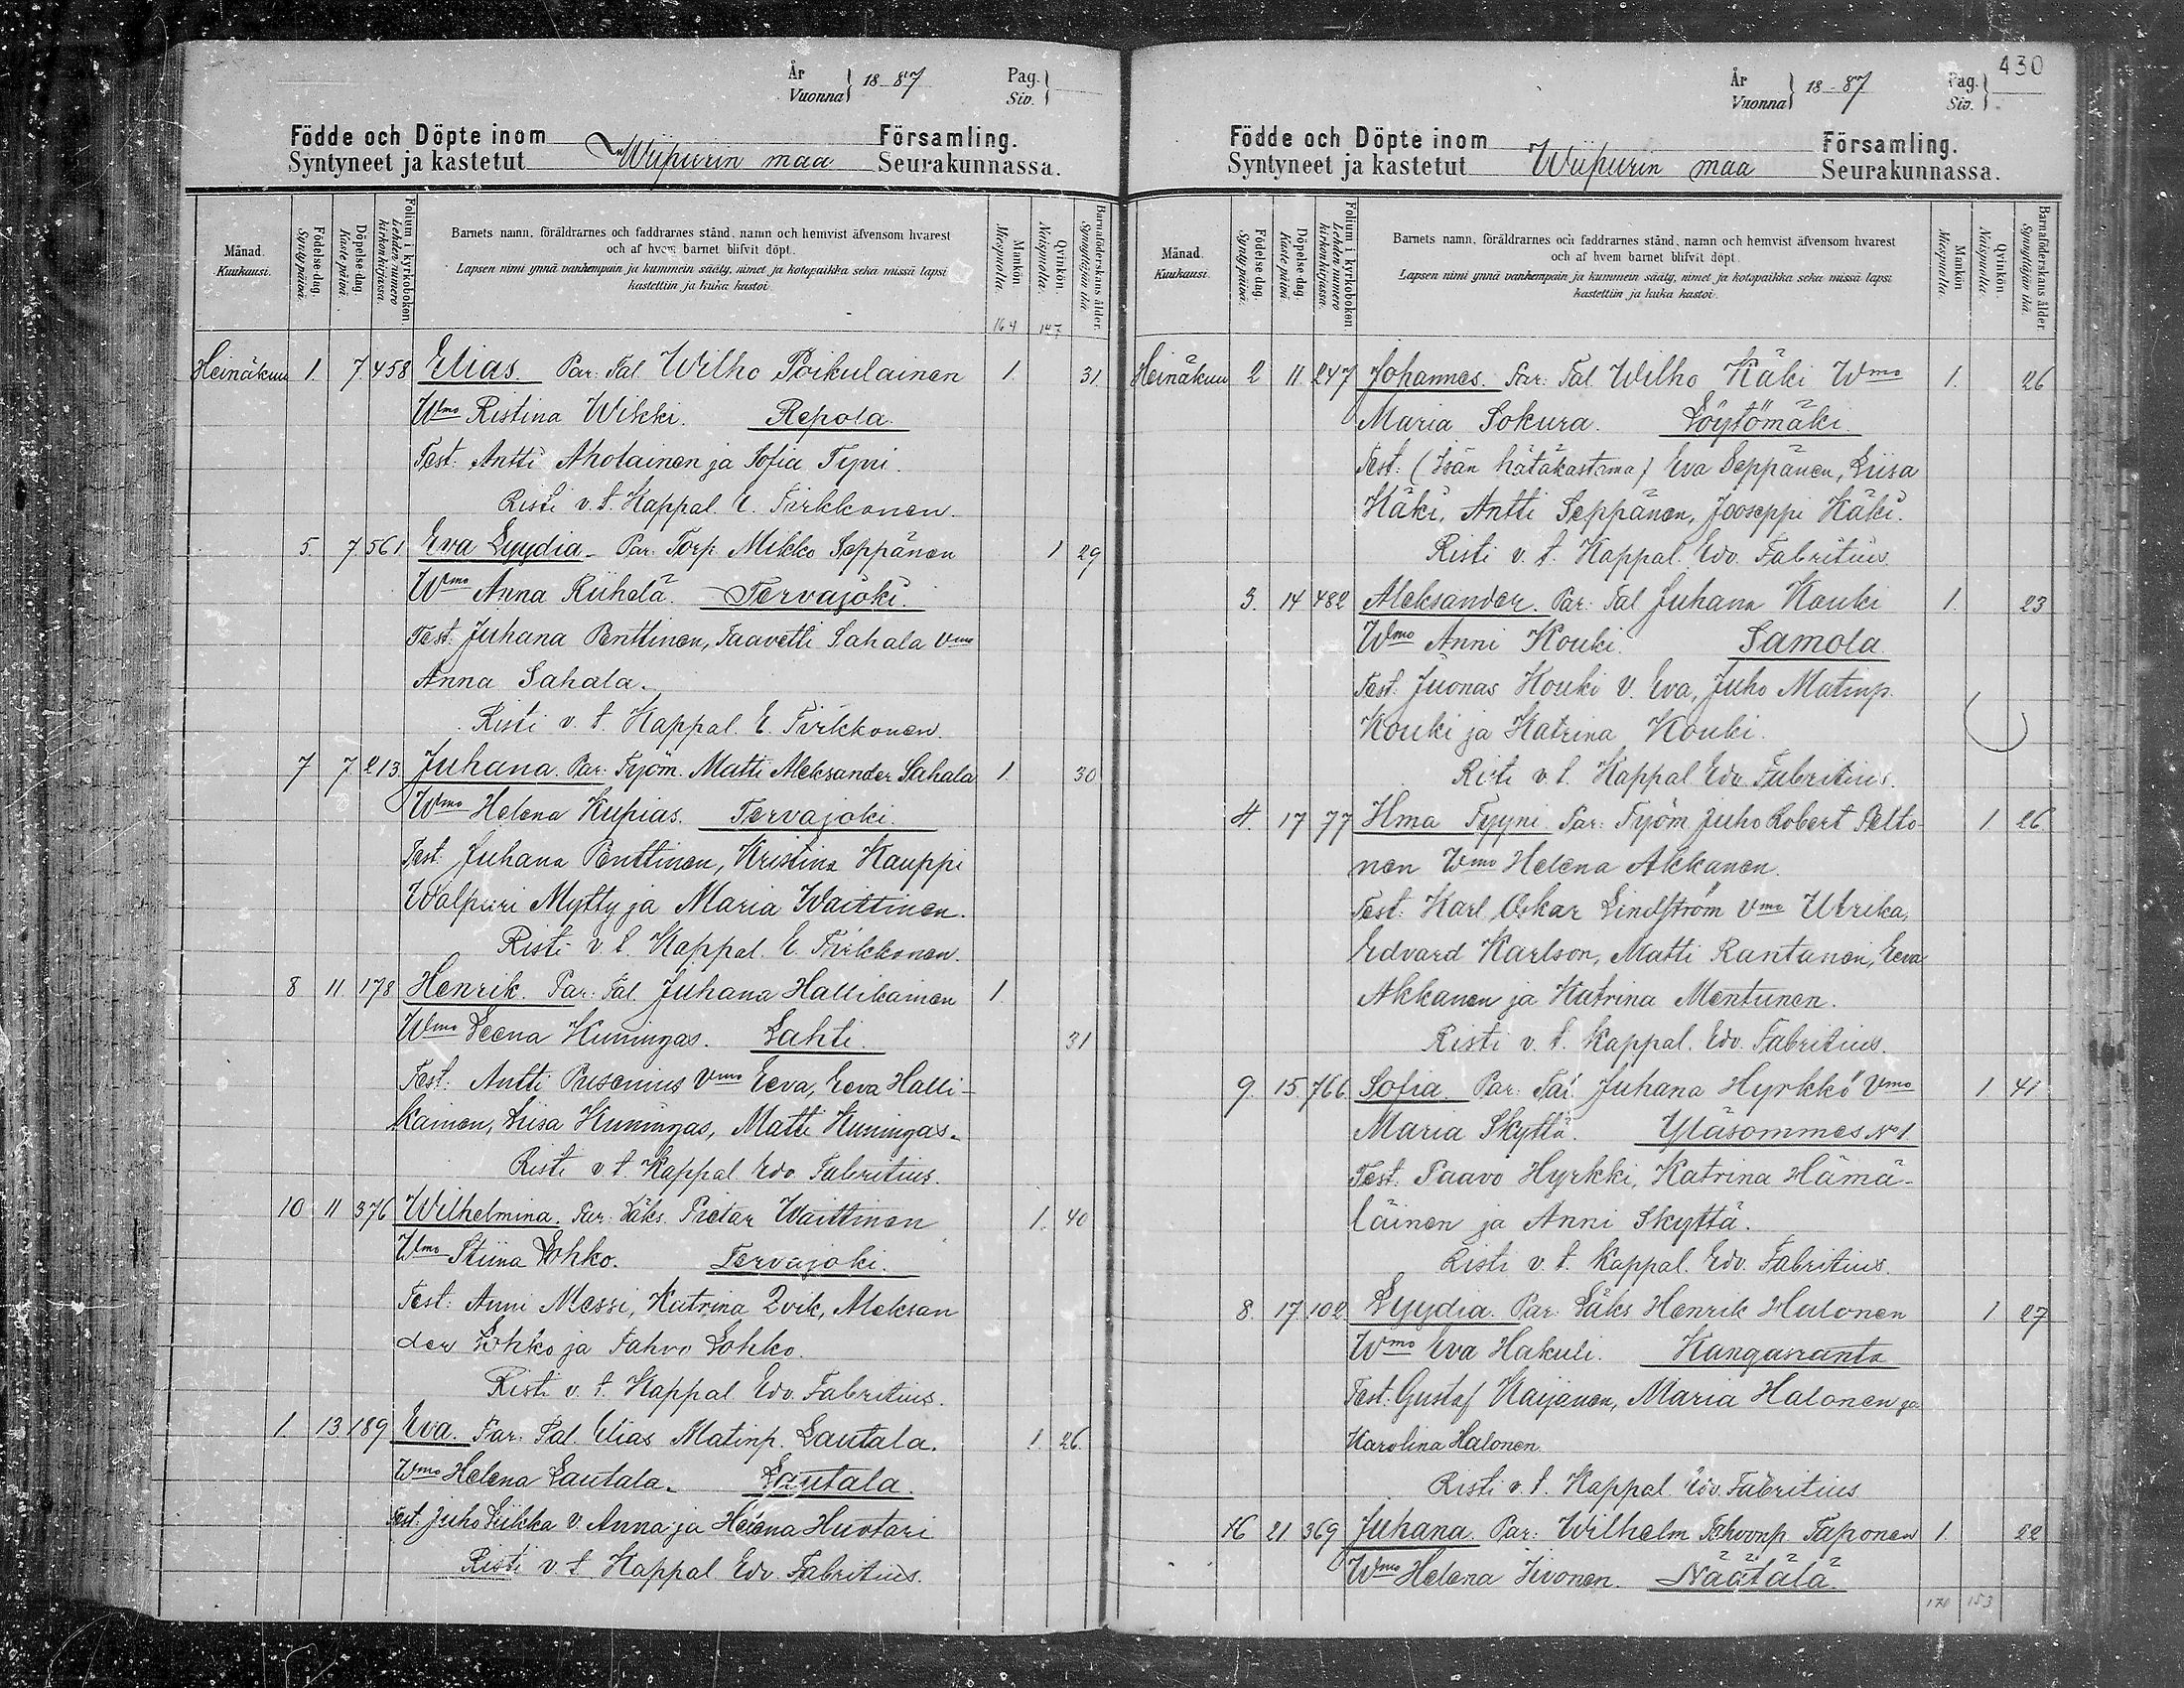 År
Vuonna } 18 87
Pag.
Siv. }
Födde och Döpte inom
Syntyneet ja kastetut Wiipurin maa Församling.
Seurakunnassa.
Månad.
Kuukausi.
Födelse-dag.
Synty päivä.
Döpelse-dag.
Kaste päivä.
Folium i kyrkoboken.
Lehden numero kirkonkirjassa.
Barnets namn, föräldrarnes och faddrarnes stånd, namn och hemvist äfvensom hvarest
och af hvem barnet blifvit döpt.
Lapsen nimi ynnä vanhempain ja kummein sääty, nimet ja kotopaikka sekä missä lapsi
kastettiin ja kuka kastoi.
Mankön.
Miespuolia.
Qvinkön.
Naispuolia.
Barnaföderskans ålder.
Synnyttäjän ikä.
164 147
Heinäkuu 1. 7 458 Elias. Par: Tal. Wilho Poikulainen 1. 31.
Wmo Ristina Wikki. Repola.
Test: Antti Aholainen ja Sofia Tyni.
Risti v. t. Kappal. E. Tirkkonen.
5. 7 561 Eva Lyydia. Par: Torp. Mikko Seppänen 1 29
Wmo Anna Riihelä. Tervajoki.
Test: Juhana Penttinen, Taavetti Sahala Vmo
Anna Sahala.
Risti v. t. Kappal. E. Tirkkonen.
7 7 213 Juhana. Par: Työm. Matti Aleksander Sahala 1. 30
Wmo Helena Kupias. Tervajoki.
Test: Juhana Penttinen, Kristina Kauppi
Walpuri Mytty ja Maria Waittinen.
Risti v. t. Kappal. E. Tirkkonen.
8 11 178 Henrik. Par: Tal. Juhana Hallikainen 1.
Wmo Leena Kuningas. Lahti. 31
Test: Antti Pusenius Vmo Eeva, Eeva Halli-
kainen, Liisa Kuningas, Matti Kuningas.
Risti v. t. Kappal. Edv. Fabritius.
10 11 376 Wilhelmina. Par: Läks. Pietar Waittinen 1. 40
Wmo Stiina Lohko. Tervajoki.
Test: Anni Messi, Katrina Qvik, Aleksan
der Lohko ja Tahvo Lohko.
Risti v. t. Kappal. Edv. Fabritius.
1. 13 189 Eva. Par: Tal. Elias Matinp. Lautala. 1. 26.
Wmo Helena Lautala. Lautala.
Test: Juho Liikka V. Anna ja Helena Huotari
Risti v. t. Kappal. Edv. Fabritius.
430
År
Vuonna } 18 87
Pag.
Siv. }
Födde och Döpte inom
Syntyneet ja kastetut Wiipurin maa Församling.
Seurakunnassa.
Månad.
Kuukausi.
Födelse-dag.
Synty päivä.
Döpelse-dag.
Kaste päivä.
Folium i kyrkoboken.
Lehden numero kirkonkirjassa.
Barnets namn, föräldrarnes och faddrarnes stånd, namn och hemvist äfvensom hvarest
och af hvem barnet blifvit döpt.
Lapsen nimi ynnä vanhempain ja kummein sääty, nimet ja kotopaikka sekä missä lapsi
kastettiin ja kuka kastoi.
Mankön.
Miespuolia.
Qvinkön.
Naispuolia.
Barnaföderskans ålder.
Synnyttäjän ikä.
Heinäkuu 2 11 247 Johannes. Par: Tal. Wilho Käki Wmo 1. 26
Maria Sokura. Löytömäki.
Test: (Isän hätäkastama) Eva Seppänen, Liisa
Käki, Antti Seppänen, Jooseppi Käki.
Risti v. t. Kappal. Edv. Fabritius.
3. 14 482 Aleksander. Par: Tal. Juhana Kouki 1. 23
Wmo Anni Kouki. Samola.
Test: Juonas Kouki V. Eva, Juho Matinp.
Kouki ja Katrina Kouki.
Risti v. t. Kappal. Edv. Fabritius.
4. 17 77 Ilma Tyyni Par: Työm Juho Robert Pelto- 1. 26
nen Wmo Helena Akkanen.
Test: Karl Oskar Lindström Vmo Ulrika,
Edvard Karlson, Matti Rantanen, Eeva
Akkanen ja Katrina Mentunen.
Risti v. t. Kappal. Edv. Fabritius.
9. 15 766 Sofia. Par: Tal. Juhana Hyrkkö Vmo 1 41
Maria Skyttä. Yläsommes No 1
Test: Paavo Hyrkki, Katrina Hämä-
läinen ja Anni Skyttä.
Risti v. t. Kappal. Edv. Fabritius.
8. 17 102 Lyydia. Par: Läks Henrik Halonen 1 27
Wmo Eva Hakuli. Kangasranta
Test: Gustaf Kaijanen, Maria Halonen ja
Karolina Halonen.
Risti v. t. Kappal. Edv. Fabritius
16 21 369 Juhana. Par: Wilhelm Tahvonp. Taponen 1. 22
Wmo Helena Iivonen. Näätälä.
170 153